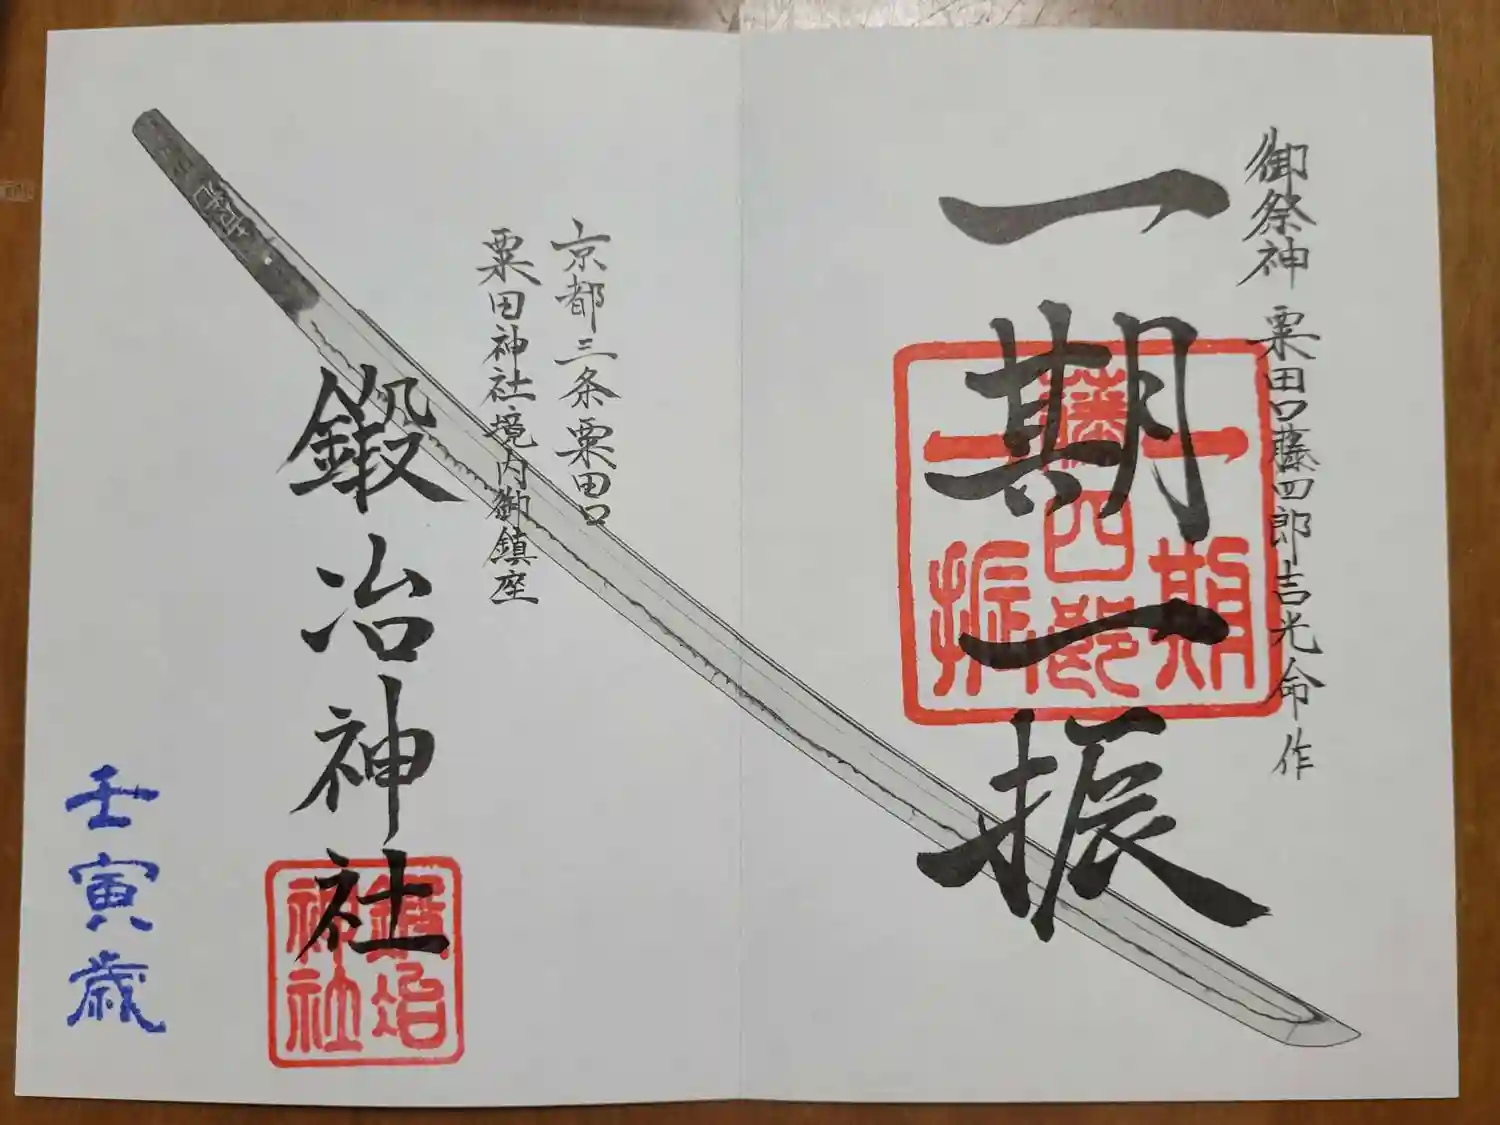 御祭神 粟田口藤四郎吉光命 作
一期一振
藤四郎
一期
一振
京都三条粟田口
粟田神社境内御鎮座
鍛冶神社
鍛冶
神社
壬寅歳
吉光